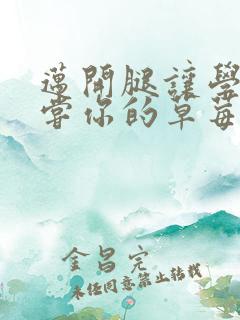 邁開腿讓學
嘗你的草莓
金昌完
未任同意禁止转载